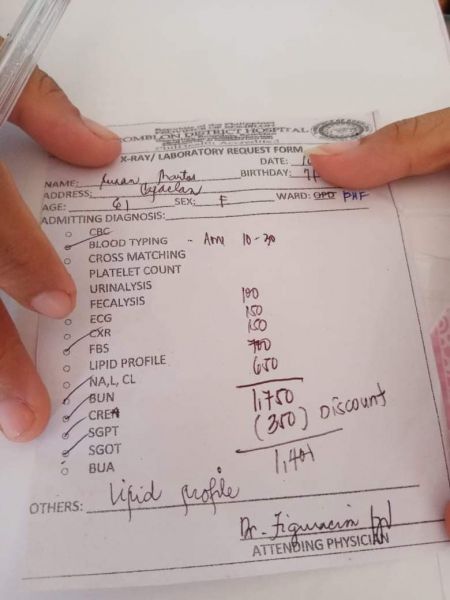 Republic of the Philippines
ROMBLON DISTRICT HOSPITAL
X-RAY/ LABORATORY REQUEST FORM
DATE: 10
NAME: Susan Santos BIRTHDAY:
ADDRESS:
AGE: 61 SEX: F WARD: OPD PHF
ADMITTING DIAGNOSIS:
CBC
BLOOD TYPING - Ann 10-30
CROSS MATCHING
PLATELET COUNT
URINALYSIS
FECALYSIS 100
ECG 150
CXR 150
FBS 700
LIPID PROFILE 650
NA,L, CL
BUN 1,750
CREA (350) Discount
SGPT
SGOT 1,401
BUA
OTHERS: Lipid profile
Dr. Figuracion
ATTENDING PHYSICIAN